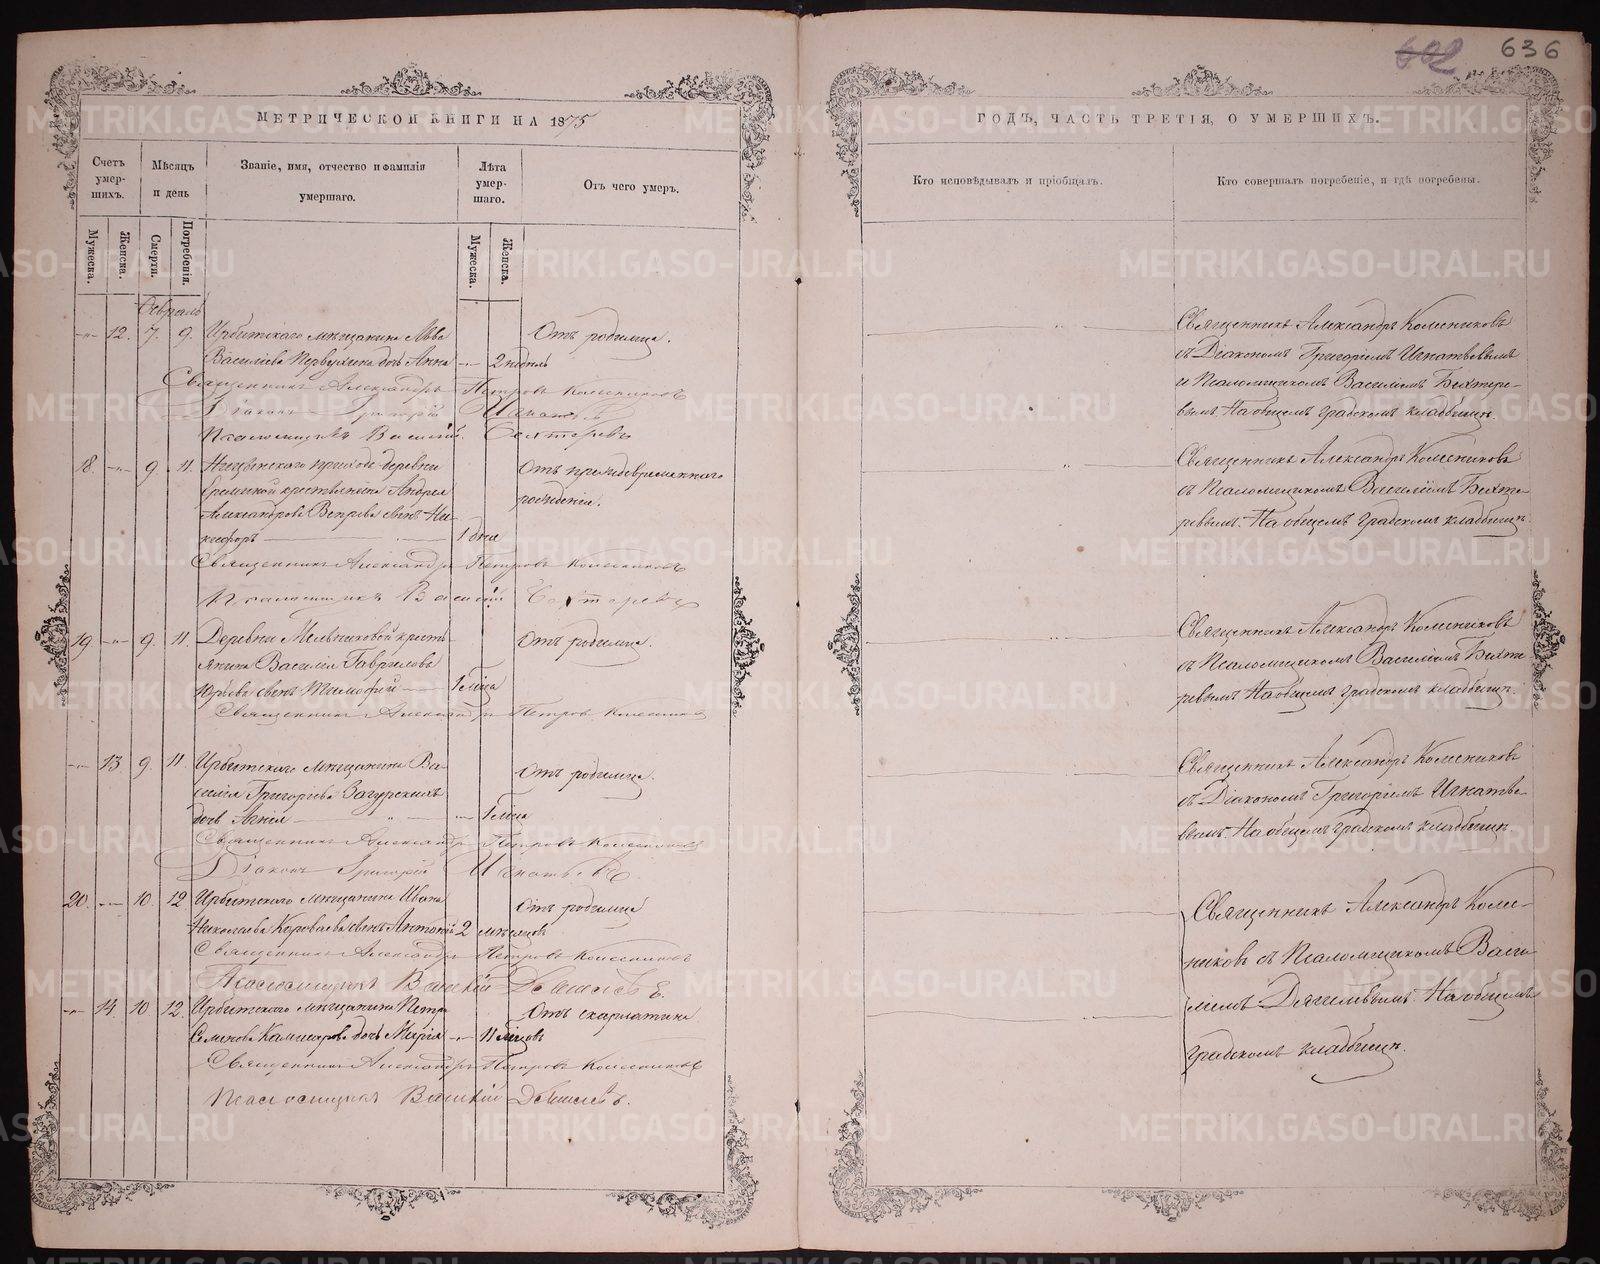 602 636
МЕТРИЧЕСКОЙ КНИГИ НА 1875
ГОДЪ, ЧАСТЬ ТРЕТІЯ, О УМЕРШИХЪ.
Счетъ умер-шихъ.
Мѣсяцъ и день
Званіе, имя, отчество и фамилія умершаго.
Лѣта умер-шаго.
Отъ чего умеръ.
Кто исповѣдывалъ и пріобщалъ.
Кто совершалъ погребеніе, и гдѣ погребены.
Мужеска.
Женска.
Смерти.
Погребенія.
Мужеска.
Женска.
Февраль
12. 7. 9. Ирбитскаго мѣщанина Льва
Василіева дочь Анна 2 недѣль
Отъ родимца.
Священникъ Александръ Петровъ Колесниковъ
Діаконъ Григорій Игнатьевъ
Псаломщикъ Василій Бехтеревъ
Священникъ Александръ Колесниковъ
съ Діакономъ Григоріемъ Игнатьевымъ
и Псаломщикомъ Василіемъ Бехтере-
вымъ На общемъ градскомъ кладбищѣ.
18. 9. 11. прихода деревни
крестьянина Андрея
Александрова сынъ Ни-
кифоръ 1 дня
Отъ преждевременнаго
рожденія.
Священникъ Александръ Петровъ Колесниковъ
Псаломщикъ Василій Бехтеревъ
Священникъ Александръ Колесниковъ
съ Псаломщикомъ Василіемъ Бехте-
ревымъ. На общемъ градскомъ кладбищѣ.
19 9. 11. Деревни Мельниковой кресть-
янина Василія Гаврилова
Юрьева сынъ Тимофей 1 мѣсяца
Отъ родимца.
Священникъ Александръ Петровъ Колесниковъ
Священникъ Александръ Колесниковъ
съ Псаломщикомъ Василіемъ Бехте-
ревымъ На общемъ градскомъ кладбищѣ.
13 9. 11. Ирбитскаго мѣщанина Ва-
силія Григорьева Загурскихъ
дочь 1 мѣсяца
Отъ родимца.
Священникъ Александръ Петровъ Колесниковъ
Діаконъ Григорій Игнатьевъ
Священникъ Александръ Колесниковъ
съ Діакономъ Григоріемъ Игнатье-
вымъ. На общемъ градскомъ кладбищѣ
20. 10. 12 Ирбитскаго мѣщанина Ивана
Николаева Короваева сынъ Антоній 2 мѣсяцовъ
Отъ родимца
Священникъ Александръ Петровъ Колесниковъ
Псаломщикъ Василій
14. 10 12. Ирбитскаго мѣщанина Петра
Семенова дочь Марія 11 мѣсяцовъ
Отъ скарлатина
Священникъ Александръ Петровъ Колесниковъ
Псаломщикъ Василій
Священникъ Александръ Колес-
никовъ съ Псаломщикомъ Васи-
ліемъ На общемъ
градскомъ кладбищѣ.
METRIKI.GASO-URAL.RU